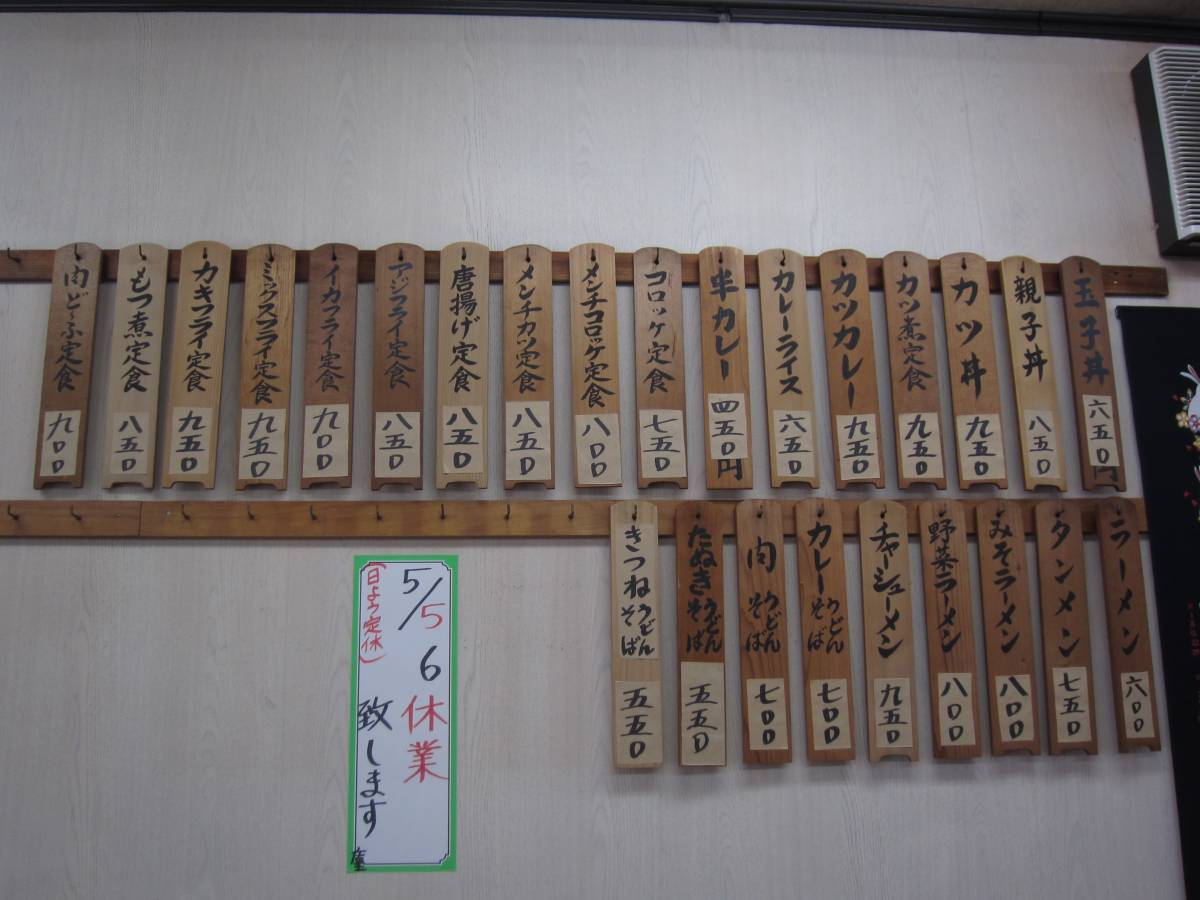 玉子丼 六五〇円
親子丼 八五〇
カツ丼 九五〇
カツ煮定食 九五〇
カツカレー 九五〇
カレーライス 六五〇
半カレー 四五〇円
コロッケ定食 七五〇
メンチコロッケ定食 八〇〇
メンチカツ定食 八五〇
唐揚げ定食 八五〇
アジフライ定食 八五〇
イカフライ定食 九〇〇
ミックスフライ定食 九五〇
カキフライ定食 九五〇
もつ煮定食 八五〇
肉どふ定食 九〇〇
ラーメン 六〇〇
タンメン 七五〇
みそラーメン 八〇〇
野菜ラーメン 八〇〇
チャーシューメン 九五〇
カレーうどんそば 七〇〇
肉うどんそば 七〇〇
たぬきうどんそば 五五〇
きつねうどんそば 五五〇
5/5 6 休業
致します
(日よう定休)